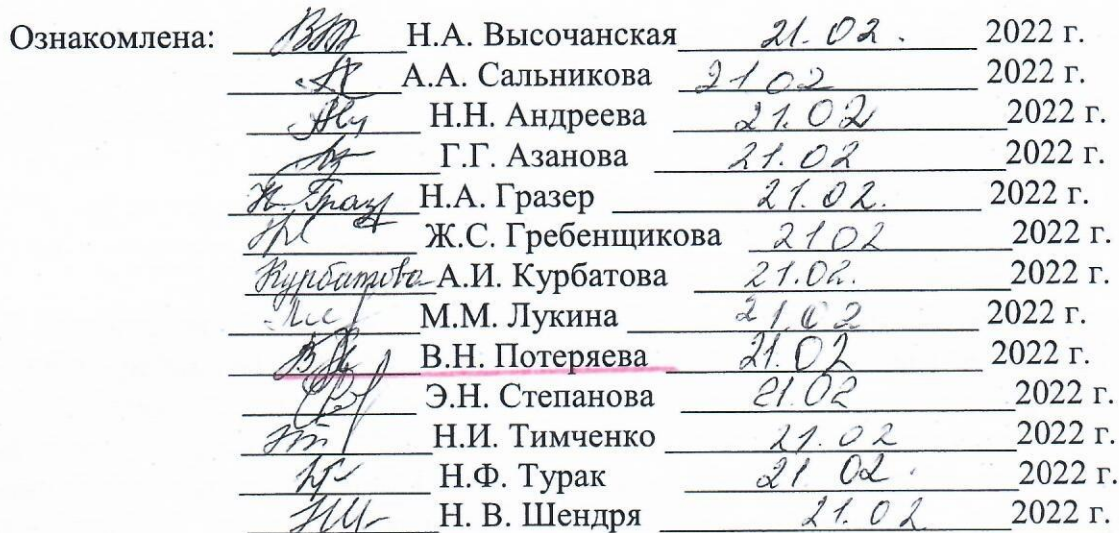 Ознакомлена: Н.А. Высочанская 21.02. 2022 г.
А.А. Сальникова 21 02 2022 г.
Н.Н. Андреева 21.02 2022 г.
Г.Г. Азанова 21.02 2022 г.
Н.А. Гразер 21.02. 2022 г.
Ж.С. Гребенщикова 21 02 2022 г.
Курбатова А.И. Курбатова 21.02. 2022 г.
М.М. Лукина 21.02 2022 г.
В.Н. Потеряева 21.02 2022 г.
Э.Н. Степанова 21.02 2022 г.
Н.И. Тимченко 21.02 2022 г.
Н.Ф. Турак 21 02. 2022 г.
Н. В. Шендря 21.02 2022 г.